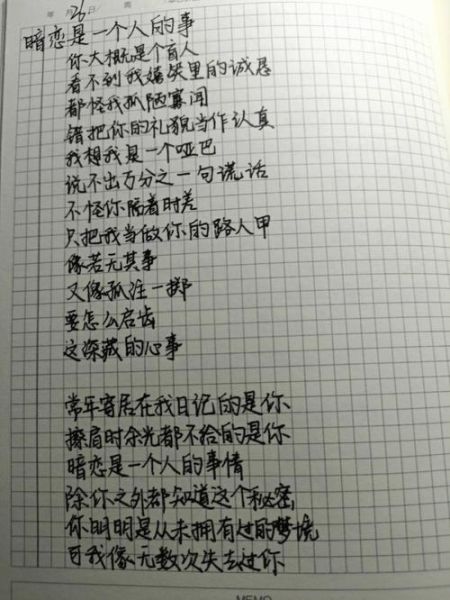 年 月 日/
26
暗恋是一个人的事
你大概是个盲人
看不到我嬉笑里的诚恳
都怪我孤陋寡闻
错把你的礼貌当作认真
我想我是一个哑巴
说不出万分之一句谎话
不怪你隔着时差
只把我当做你的路人甲
像若无其事
又像孤注一掷
要怎么启齿
这深藏的心事
常年寄居在我日记的是你
擦肩时余光都不给的是你
暗恋是一个人的事情
除你之外都知道这个秘密
你明明是从未拥有过的梦境
可我像无数次失去过你
MEMO